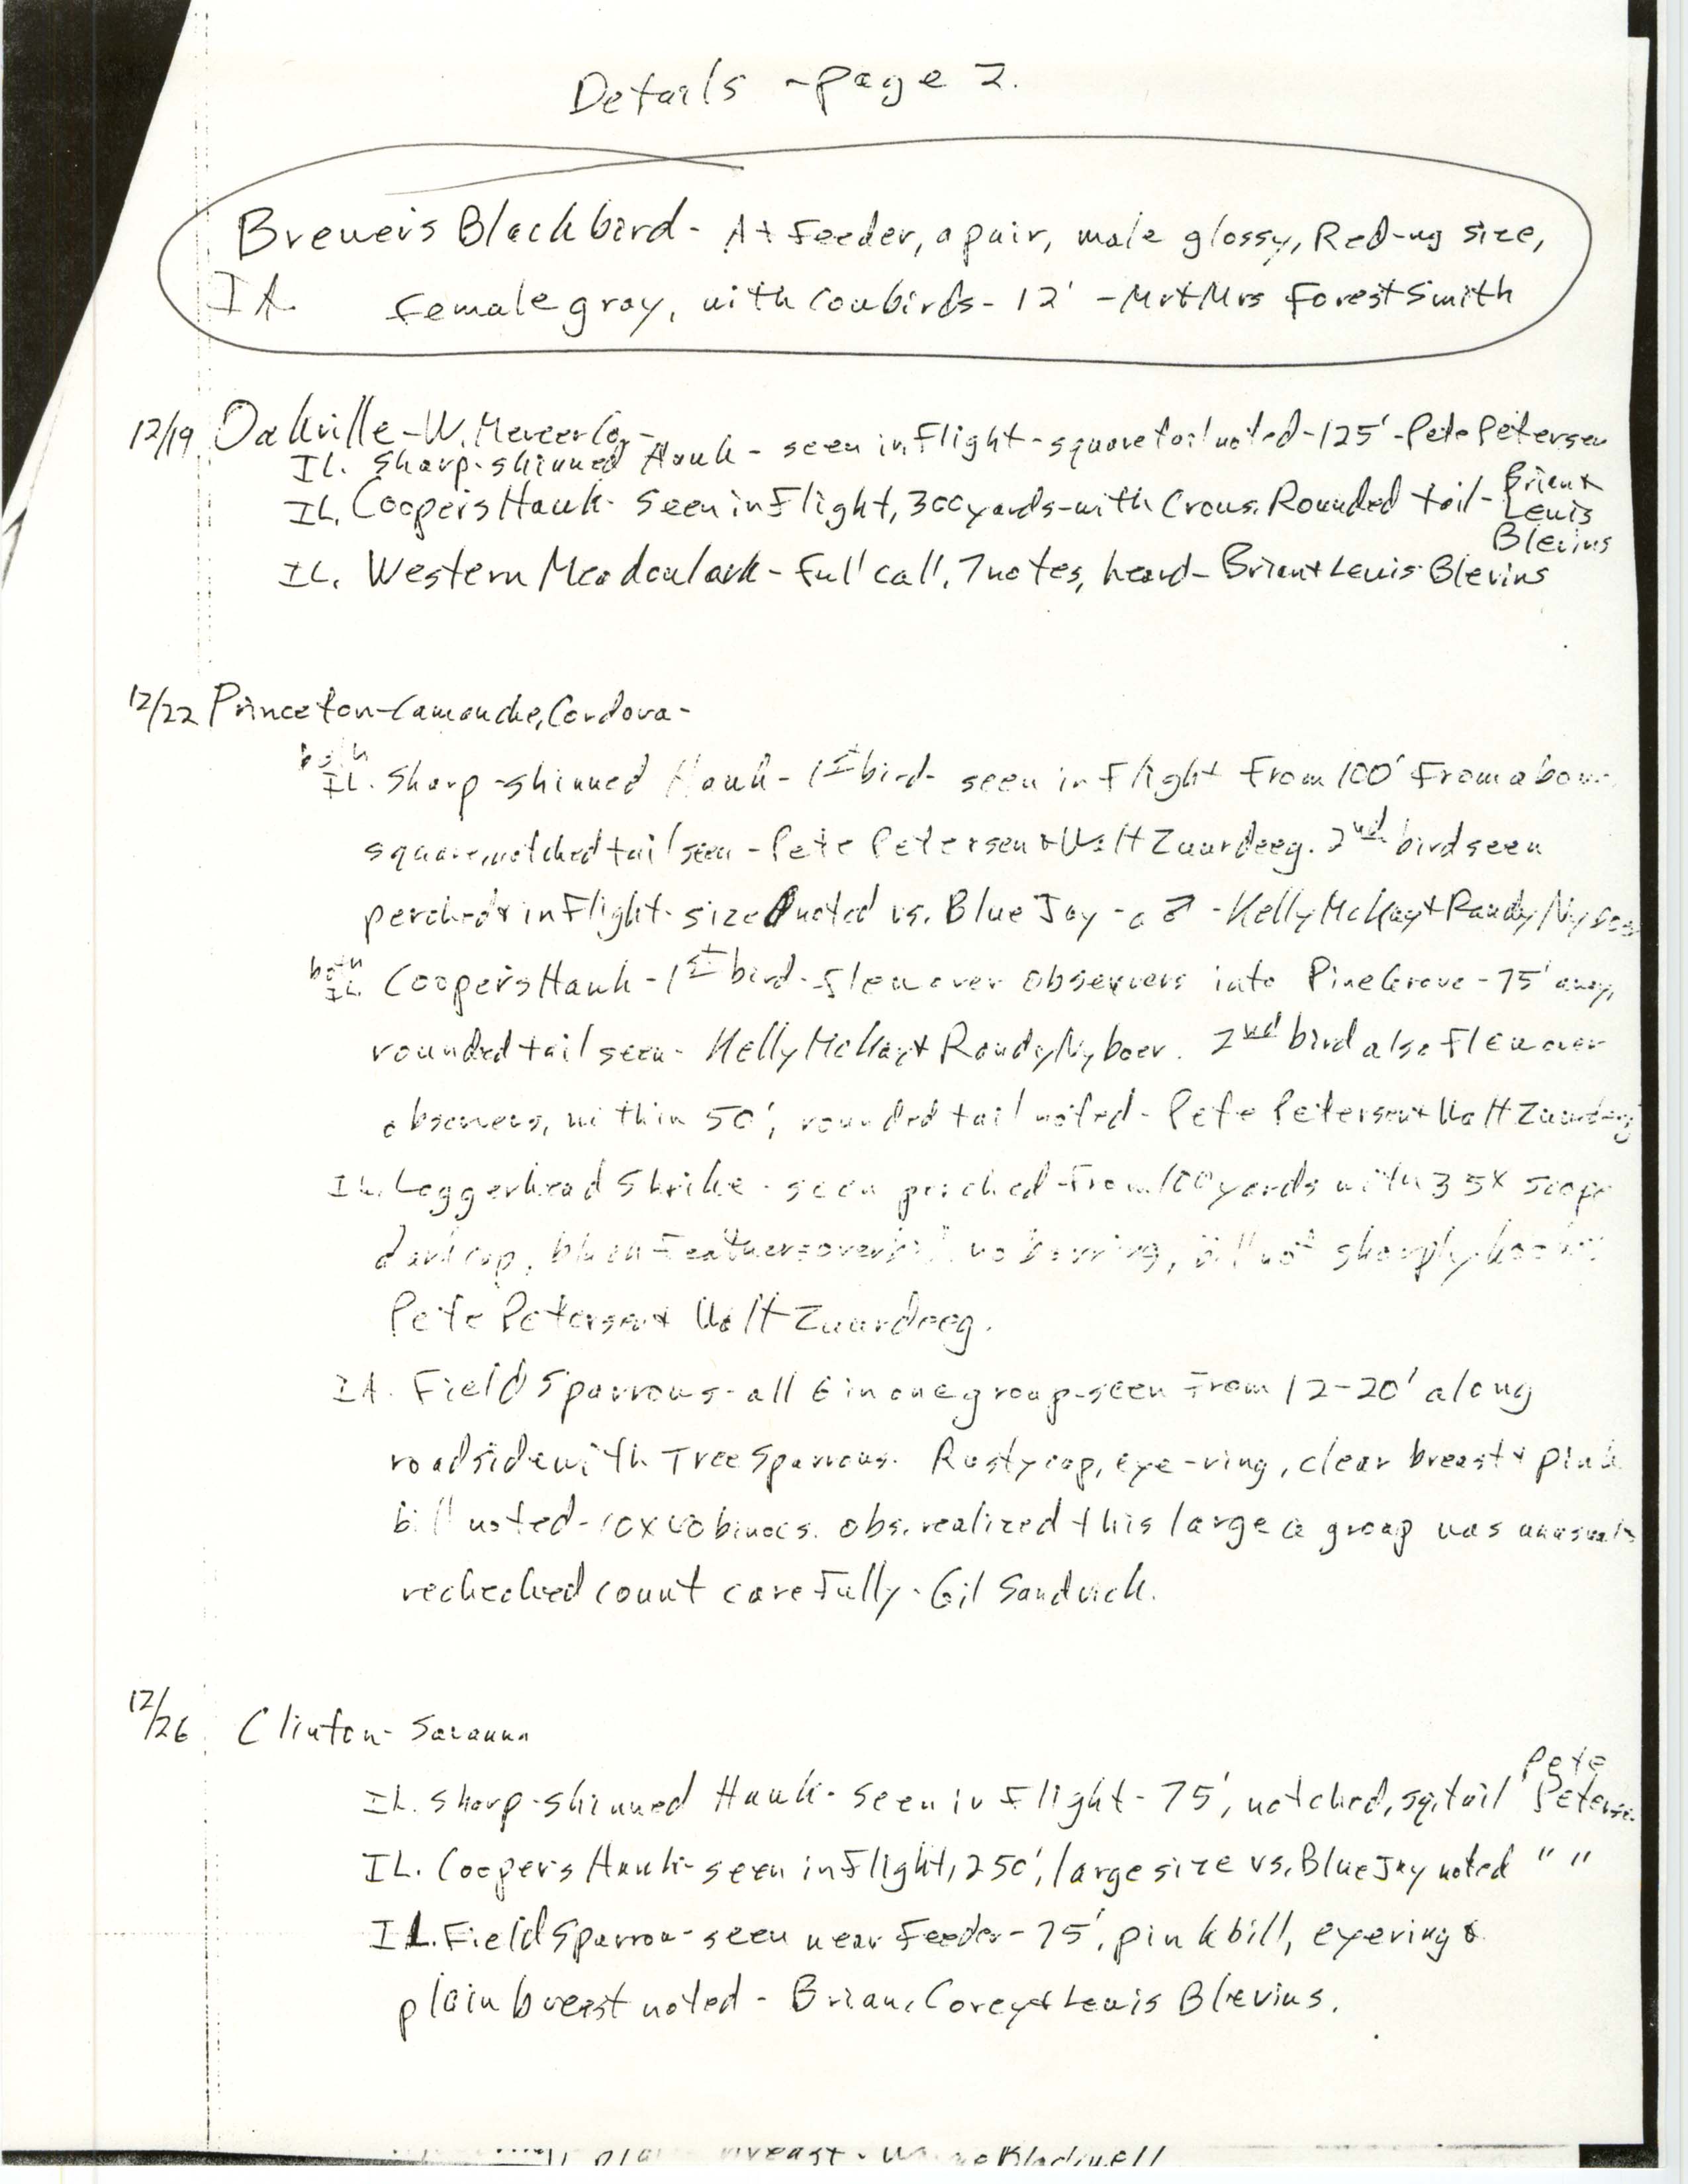 Details - page 2.
Brewer's Blackbird - At feeder, a pair, male glossy, Red-wg size,
IA. female gray, with Cowbirds - 12' - Mr + Mrs Forest Smith
12/19 Oakville - W. Mercer Co. -
IL. Sharp-shinned Hawk - seen in flight - square tail noted - 125' - Pete Petersen
IL. Cooper's Hawk - seen in flight, 300 yards - with Crows. Rounded tail - Brian + Lewis Blevins
IL. Western Meadowlark - full call, 7 notes, heard - Brian + Lewis Blevins
12/22 Princeton-Camanche, Cordova -
both IL. Sharp-shinned Hawk - 1st bird - seen in flight from 100' from above
square, notched tail seen - Pete Petersen + Walt Zuurdeeg. 2nd bird seen
perched + in flight - size noted vs. Blue Jay - a ♂ - Kelly McKay + Randy Nyboer
both IL. Cooper's Hawk - 1st bird - flew over observers into Pine Grove - 75' away,
rounded tail seen - Kelly McKay + Randy Nyboer. 2nd bird also flew over
observers, within 50', rounded tail noted - Pete Petersen + Walt Zuurdeeg
IL. Loggerhead Shrike - seen perched from 100 yards with 35X scope
dark cap, feathers over bill, no barring, bill not sharply
Pete Petersen + Walt Zuurdeeg.
IA. Field Sparrows - all 6 in one group - seen from 12-20' along
roadside with Tree Sparrows. Rusty cap, eye-ring, clear breast + pink
bill noted - 10X40 binocs. obs. realized this large a group was unusual,
rechecked count carefully - Gil Sandvick.
12/26 Clinton - Savanna
IL. Sharp-shinned Hawk - seen in flight - 75', notched, sq. tail Pete Petersen
IL. Cooper's Hawk - seen in flight, 250', large size vs. Blue Jay noted " "
IL. Field Sparrow - seen near feeder - 75', pink bill, eyering &
plain breast noted - Brian, Corey + Lewis Blevins.
breast - Blackwell